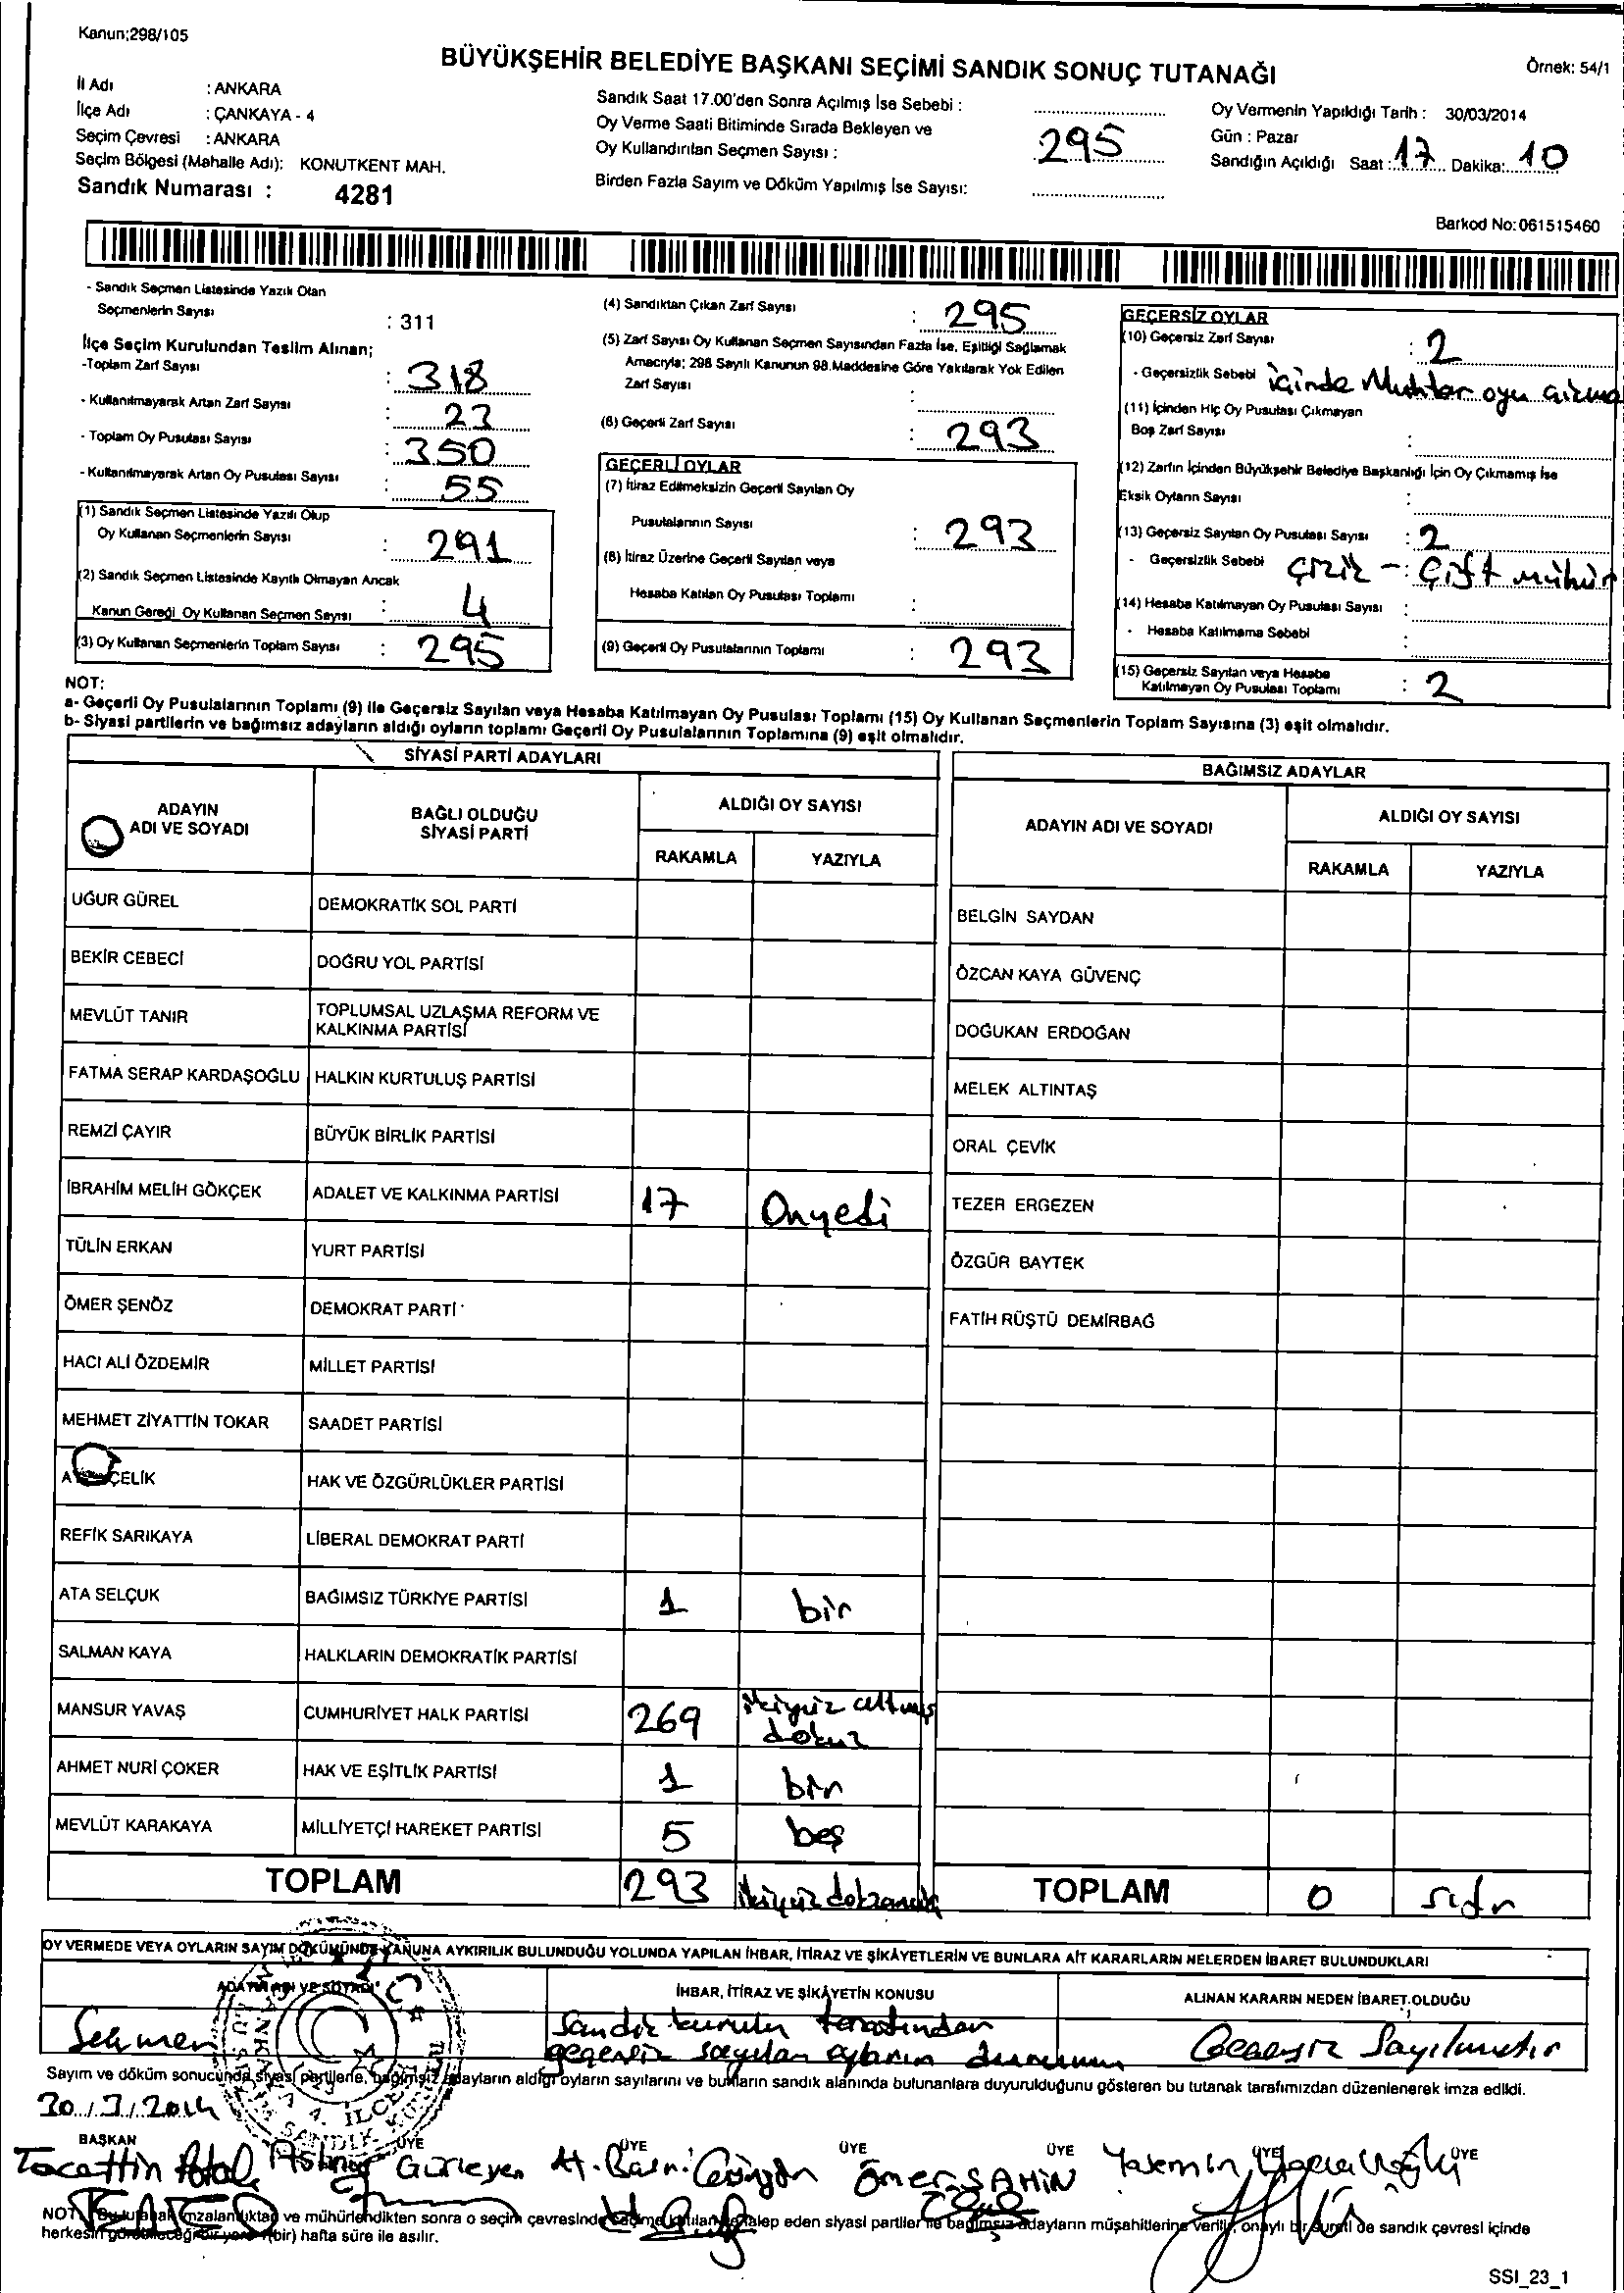 Kanun;298/105
BÜYÜKŞEHİR BELEDİYE BAŞKANI SEÇİMİ SANDIK SONUÇ TUTANAĞI
Örnek: 54/1
İl Adı : ANKARA
İlçe Adı : ÇANKAYA - 4
Seçim Çevresi : ANKARA
Seçim Bölgesi (Mahalle Adı): KONUTKENT MAH.
Sandık Numarası : 4281
Sandık Saat 17.00'den Sonra Açılmış İse Sebebi :
Oy Verme Saati Bitiminde Sırada Bekleyen ve
Oy Kullandırılan Seçmen Sayısı : 295
Birden Fazla Sayım ve Döküm Yapılmış İse Sayısı:
Oy Vermenin Yapıldığı Tarih : 30/03/2014
Gün : Pazar
Sandığın Açıldığı Saat : 17 Dakika: 10
Barkod No:061515460
- Sandık Seçmen Listesinde Yazılı Olan
Seçmenlerin Sayısı : 311
İlçe Seçim Kurulundan Teslim Alınan;
-Toplam Zarf Sayısı : 318
- Kullanılmayarak Artan Zarf Sayısı : 23
- Toplam Oy Pusulası Sayısı : 350
- Kullanılmayarak Artan Oy Pusulası Sayısı : 55
(1) Sandık Seçmen Listesinde Yazılı Olup
Oy Kullanan Seçmenlerin Sayısı : 291
(2) Sandık Seçmen Listesinde Kayıtlı Olmayan Ancak
Kanun Gereği Oy Kullanan Seçmen Sayısı : 4
(3) Oy Kullanan Seçmenlerin Toplam Sayısı : 295
(4) Sandıktan Çıkan Zarf Sayısı : 295
(5) Zarf Sayısı Oy Kullanan Seçmen Sayısından Fazla İse, Eşitliği Sağlamak
Amacıyla; 298 Sayılı Kanunun 98.Maddesine Göre Yakılarak Yok Edilen
Zarf Sayısı :
(6) Geçerli Zarf Sayısı : 293
GEÇERLİ OYLAR
(7) İtiraz Edilmeksizin Geçerli Sayılan Oy
Pusulalarının Sayısı : 293
(8) İtiraz Üzerine Geçerli Sayılan veya
Hesaba Katılan Oy Pusulası Toplamı :
(9) Geçerli Oy Pusulalarının Toplamı : 293
GEÇERSİZ OYLAR
(10) Geçersiz Zarf Sayısı : 2
- Geçersizlik Sebebi içinde Muhtar oyu çıkma
(11) İçinden Hiç Oy Pusulası Çıkmayan
Boş Zarf Sayısı :
(12) Zarfın İçinden Büyükşehir Belediye Başkanlığı İçin Oy Çıkmamış İse
Eksik Oyların Sayısı :
(13) Geçersiz Sayılan Oy Pusulası Sayısı : 2
- Geçersizlik Sebebi : Çizik - Çift mühür
(14) Hesaba Katılmayan Oy Pusulası Sayısı :
- Hesaba Katılmama Sebebi :
(15) Geçersiz Sayılan veya Hesaba
Katılmayan Oy Pusulası Toplamı : 2
NOT:
a- Geçerli Oy Pusulalarının Toplamı (9) ile Geçersiz Sayılan veya Hesaba Katılmayan Oy Pusulası Toplamı (15) Oy Kullanan Seçmenlerin Toplam Sayısına (3) eşit olmalıdır.
b- Siyasi partilerin ve bağımsız adayların aldığı oyların toplamı Geçerli Oy Pusulalarının Toplamına (9) eşit olmalıdır.
SİYASİ PARTİ ADAYLARI
ADAYIN ADI VE SOYADI
BAĞLI OLDUĞU SİYASİ PARTİ
ALDIĞI OY SAYISI
RAKAMLA YAZIYLA
UĞUR GÜREL DEMOKRATİK SOL PARTİ
BEKİR CEBECİ DOĞRU YOL PARTİSİ
MEVLÜT TANIR TOPLUMSAL UZLAŞMA REFORM VE
KALKINMA PARTİSİ
FATMA SERAP KARDAŞOĞLU HALKIN KURTULUŞ PARTİSİ
REMZİ ÇAYIR BÜYÜK BİRLİK PARTİSİ
İBRAHİM MELİH GÖKÇEK ADALET VE KALKINMA PARTİSİ 17 Onyedi
TÜLİN ERKAN YURT PARTİSİ
ÖMER ŞENÖZ DEMOKRAT PARTİ
HACI ALİ ÖZDEMİR MİLLET PARTİSİ
MEHMET ZİYATTİN TOKAR SAADET PARTİSİ
ÇELİK HAK VE ÖZGÜRLÜKLER PARTİSİ
REFİK SARIKAYA LİBERAL DEMOKRAT PARTİ
ATA SELÇUK BAĞIMSIZ TÜRKİYE PARTİSİ 1 bir
SALMAN KAYA HALKLARIN DEMOKRATİK PARTİSİ
MANSUR YAVAŞ CUMHURİYET HALK PARTİSİ 269 ikiyüz altmış
dokuz
AHMET NURİ ÇOKER HAK VE EŞİTLİK PARTİSİ 1 bir
MEVLÜT KARAKAYA MİLLİYETÇİ HAREKET PARTİSİ 5 beş
TOPLAM 293 ikiyüz doksanüç
BAĞIMSIZ ADAYLAR
ADAYIN ADI VE SOYADI
ALDIĞI OY SAYISI
RAKAMLA YAZIYLA
BELGİN SAYDAN
ÖZCAN KAYA GÜVENÇ
DOĞUKAN ERDOĞAN
MELEK ALTINTAŞ
ORAL ÇEVİK
TEZER ERGEZEN
ÖZGÜR BAYTEK
FATİH RÜŞTÜ DEMİRBAĞ
TOPLAM 0 sıfır
OY VERMEDE VEYA OYLARIN SAYIM DÖKÜMÜNDE KANUNA AYKIRILIK BULUNDUĞU YOLUNDA YAPILAN İHBAR, İTİRAZ VE ŞİKÂYETLERİN VE BUNLARA AİT KARARLARIN NELERDEN İBARET BULUNDUKLARI
ADAYIN ADI VE SOYADI İHBAR, İTİRAZ VE ŞİKÂYETİN KONUSU ALINAN KARARIN NEDEN İBARET OLDUĞU
Seçmen Sandık kurulu tarafından
geçersiz sayılan oyların durumu Geçersiz Sayılmıştır
Sayım ve döküm sonucunda siyasi partilerle, bağımsız adayların aldığı oyların sayılarını ve bunların sandık alanında bulunanlara duyurulduğunu gösteren bu tutanak tarafımızdan düzenlenerek imza edildi.
30/3/2014
BAŞKAN ÜYE ÜYE ÜYE ÜYE ÜYE ÜYE
Tacettin Gürleyen Ömer ŞAHİN Yasemin
NOT: Bu tutanak imzalandıktan ve mühürlendikten sonra o seçim çevresinde seçime katılan ve talep eden siyasi partiler ile bağımsız adayların müşahitlerine verilir, onaylı bir sureti de sandık çevresi içinde
herkesin görebileceği bir yere (bir) hafta süre ile asılır.
SSI_23_1